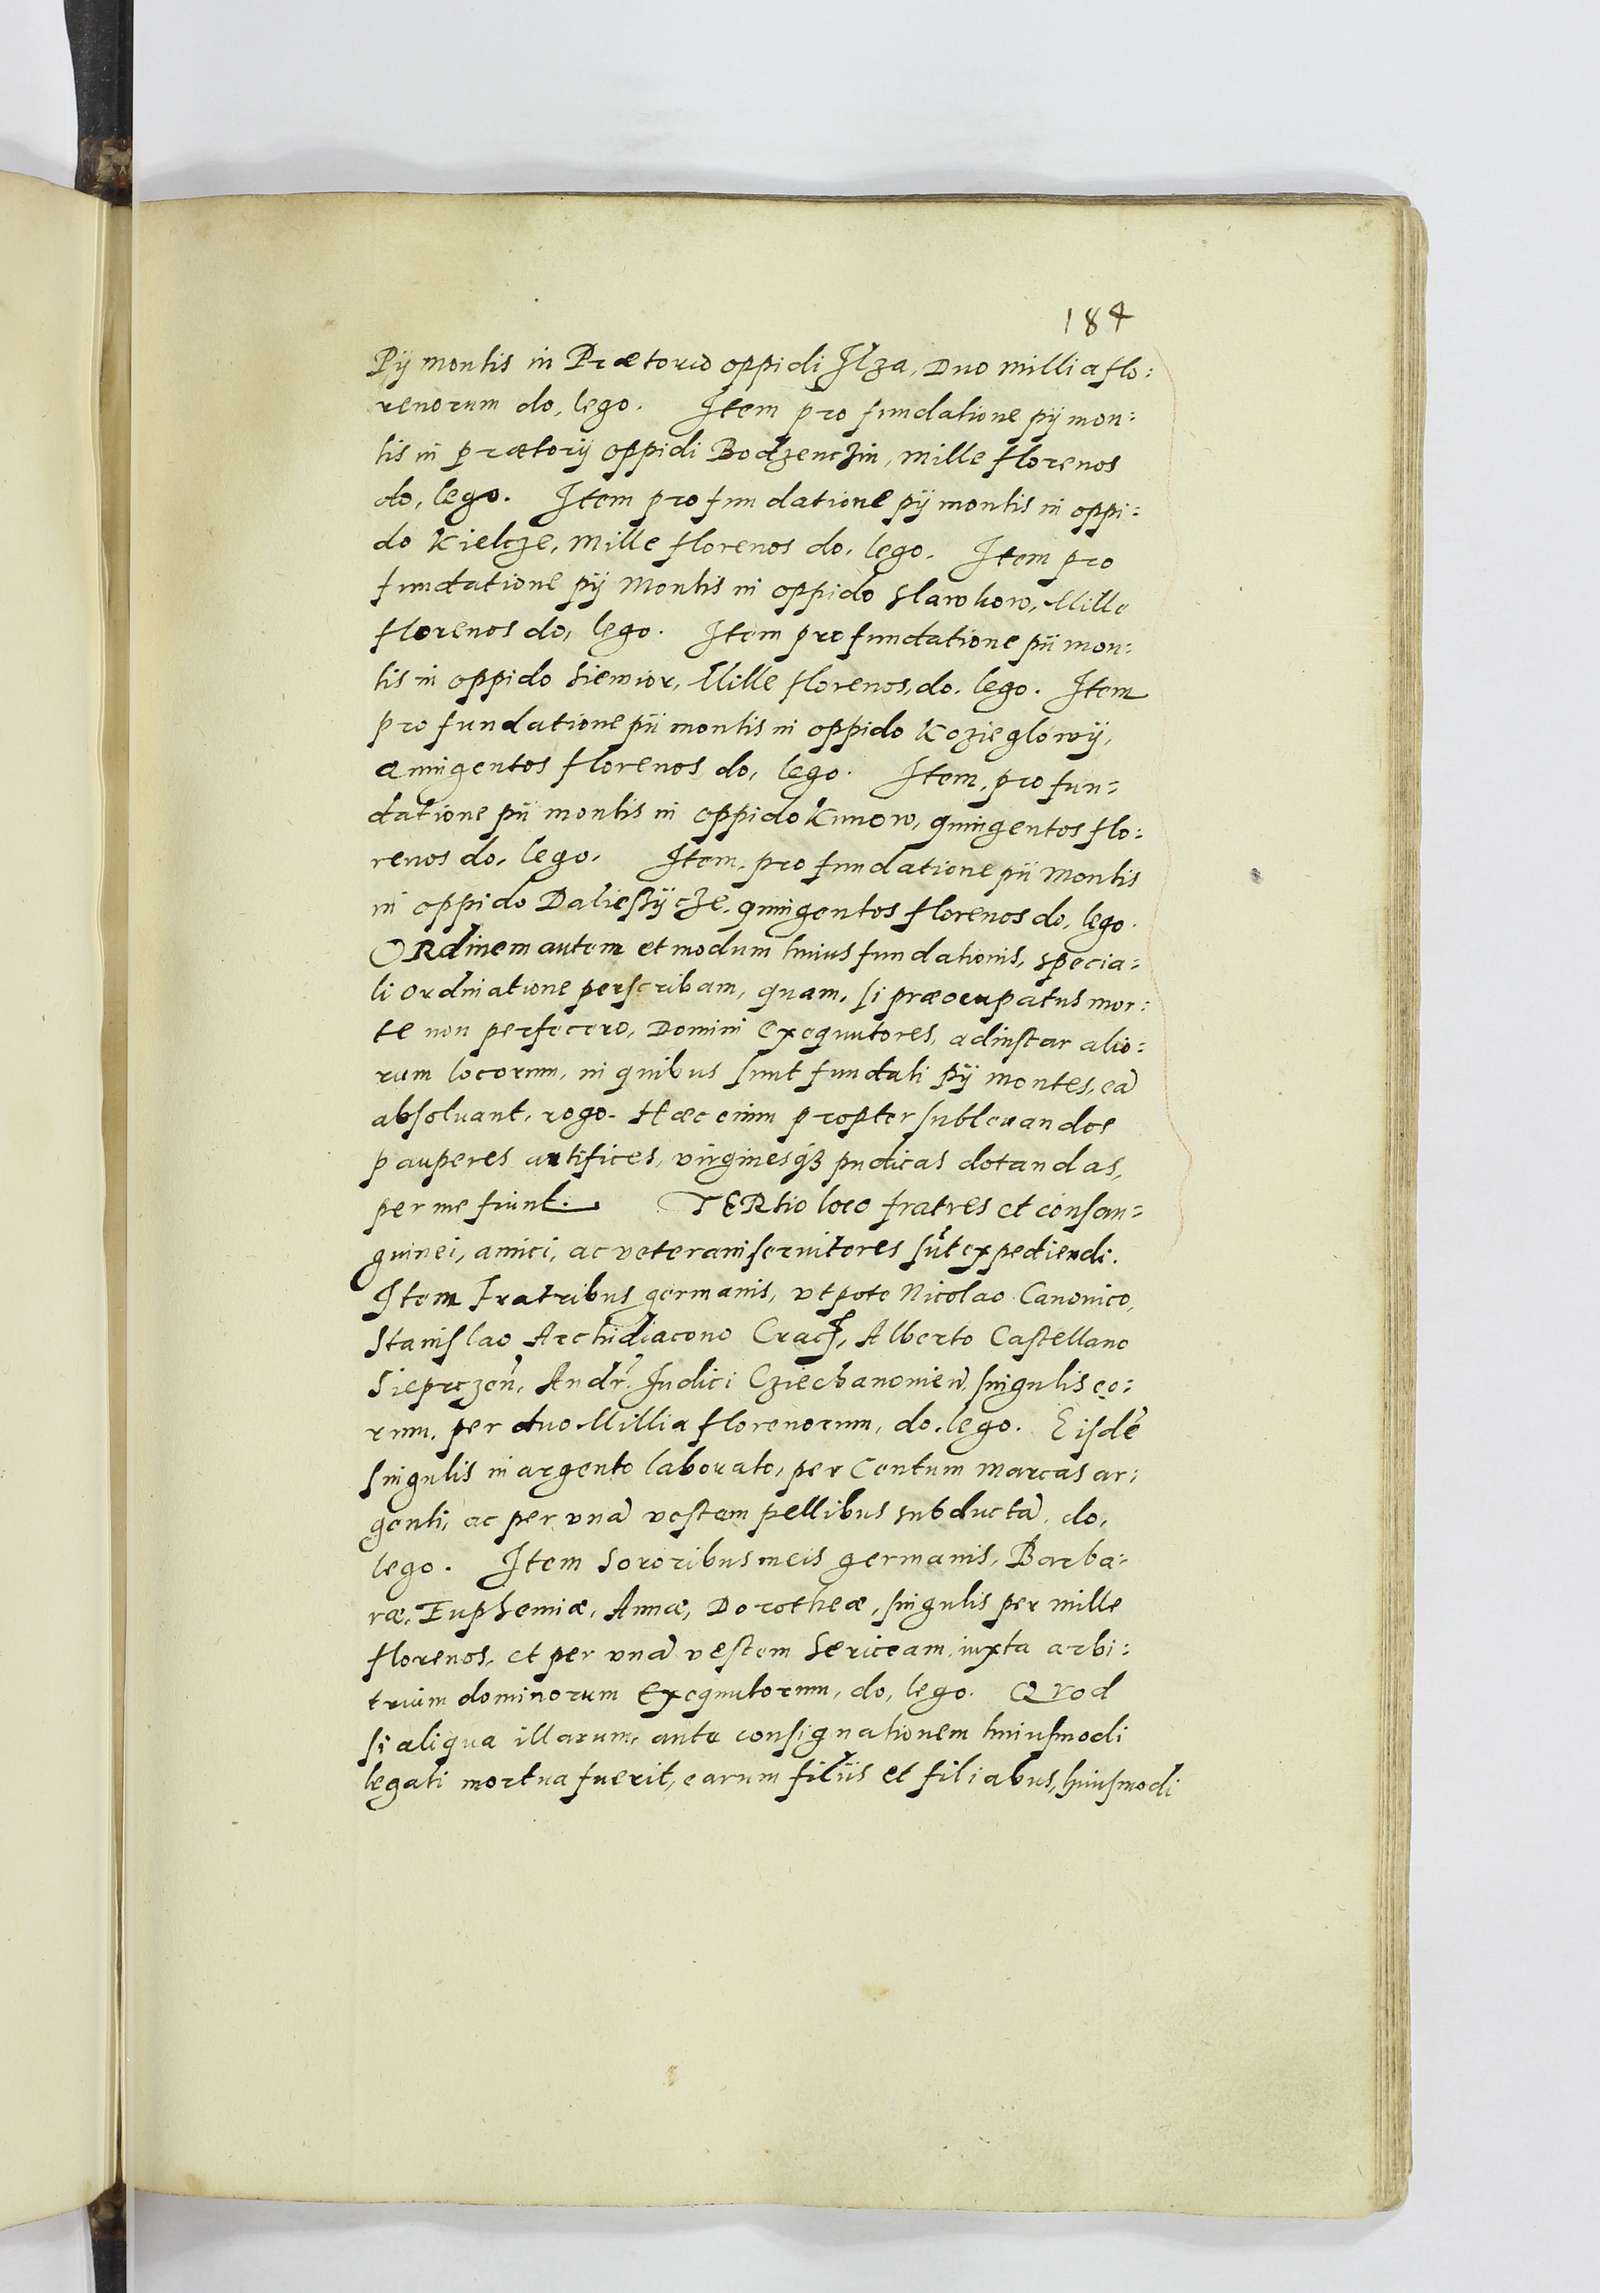 184
Pÿ montis in Prætorio oppidi Ilza, Duo millia flo:
renorum do, lego. Item pro fundatione pÿ mon:
tis in prætorÿ oppidi Bodzenczin, mille florenos
do, lego. Item pro fundatione pÿ montis in oppi:
do Kielcze, mille florenos do, lego. Item pro
fundatione pÿ Montis in oppido Slawkow, Mille
florenos do, lego. Item pro fundatione pii mon:
tis in oppido Siewior, Mille florenos, do, lego. Item
pro fundatione pii montis in oppido Kozieglowÿ,
Quingentos florenos do, lego. Item, pro fun:
datione pii montis in oppido Kunow, quingentos flo:
renos do, lego. Item, pro fundatione pii Montis
in oppido Daließÿcze, quingentos florenos do, lego.
ORdinem autem et modum huius fundationis, specia:
li ordinatione perscribam, quam, si præocupatus mor:
te non perfecero, Domini Exequutores, adinstar alio:
rum locorum, in quibus sunt fundati pÿ montes, eã
absoluant, rogo. Hæc enim propter subleuandos
pauperes artifices, virginesqʒ pudicas dotandas,
per me fiunt. TERtio loco fratres et consan:
guinei, amici, ac veterani seruitores sũt expediendi.
Item Fratribus germanis, vtpote Nicolao Canonico,
Stanislao Archidiacono Crac̃, Alberto Castellano
Sieprczeñ, Andr̃. Iudici Cziechanouieñ singulis eo:
rum, per duo Millia florenorum, do, lego. Eisdẽ
singulis in argento laborato, per Centum marcas ar:
genti, ac per vnã vestem pellibus subductã, do,
lego. Item Sororibus meis germanis, Barba:
ræ, Euphemiæ, Annæ, Dorotheæ, singulis per mille
florenos, et per vnã vestem Sericeam, iuxta arbi:
trium dominorum Exequutorum, do, lego. Qvod
si aliqua illarum, ante consignationem huiusmodi
legati mortua fuerit, earum filiis et filiabus, huiusmodi